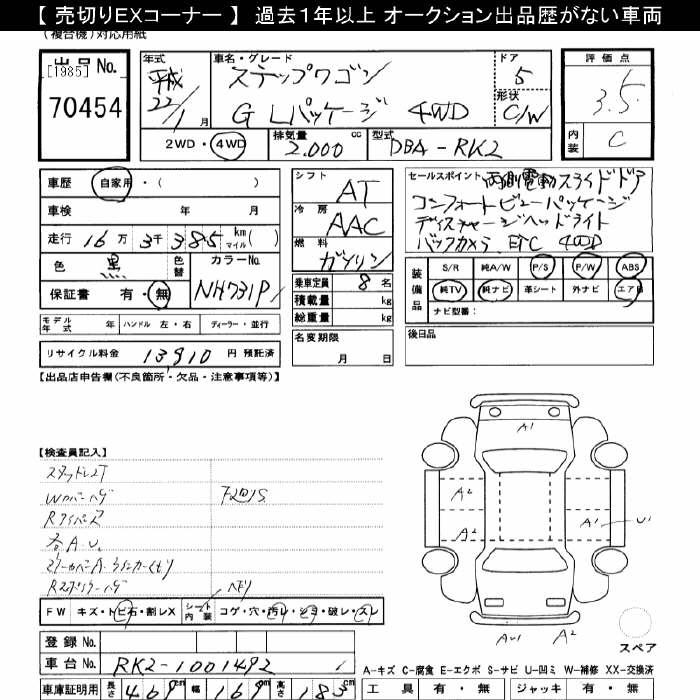 【 売切りEXコーナー 】 過去１年以上 オークション出品歴がない車両
(複合機)対応用紙
出品 No.
[1985]
70454
年式
平成
22/1月
車名・グレード
ステップワゴン
G Lパッケージ 4WD
ドア
5
形状
C/W
評価点
3.5
内装
C
2WD・4WD
排気量
2.000 cc
型式
DBA-RK2
車歴 自家用・( )
車検 年 月
走行 16万 3千 385 km マイル( )
色 黒
色替
カラーNo.
NH731P
保証書 有・無
シフト
AT
冷房
AAC
燃料
ガソリン
乗車定員 8 名
積載量 kg
総重量 kg
セールスポイント 両側電動スライドドア
コンフォートビューパッケージ
ディスチャージヘッドライト
バックカメラ ETC 4WD
装備品
S/R 純A/W P/S P/W ABS
純TV 純ナビ 革シート 外ナビ エアB
ナビ型番：
モデル年式 年 ハンドル 左・右 ディーラー・並行
リサイクル料金 13,910 円 預託済
名変期限
月 日
後日品
【出品店申告欄(不良箇所・欠品・注意事項等)】
【検査員記入】
スタッドレスT
RワイパーX
各A.U.
A1
A2
A2
A1 U1
A2
FW キズ・トビ石・割レX
シート内装 コゲ・穴・汚レ・シミ・破レ・スレ
登録 No.
車台 No. RK2-1001492
スペア
A-キズ C-腐食 E-エクボ S-サビ U-凹ミ W-補修 XX-交換済
車庫証明用 長さ 469cm 幅 169cm 高さ 183cm
工具 有・無 ジャッキ 有・無